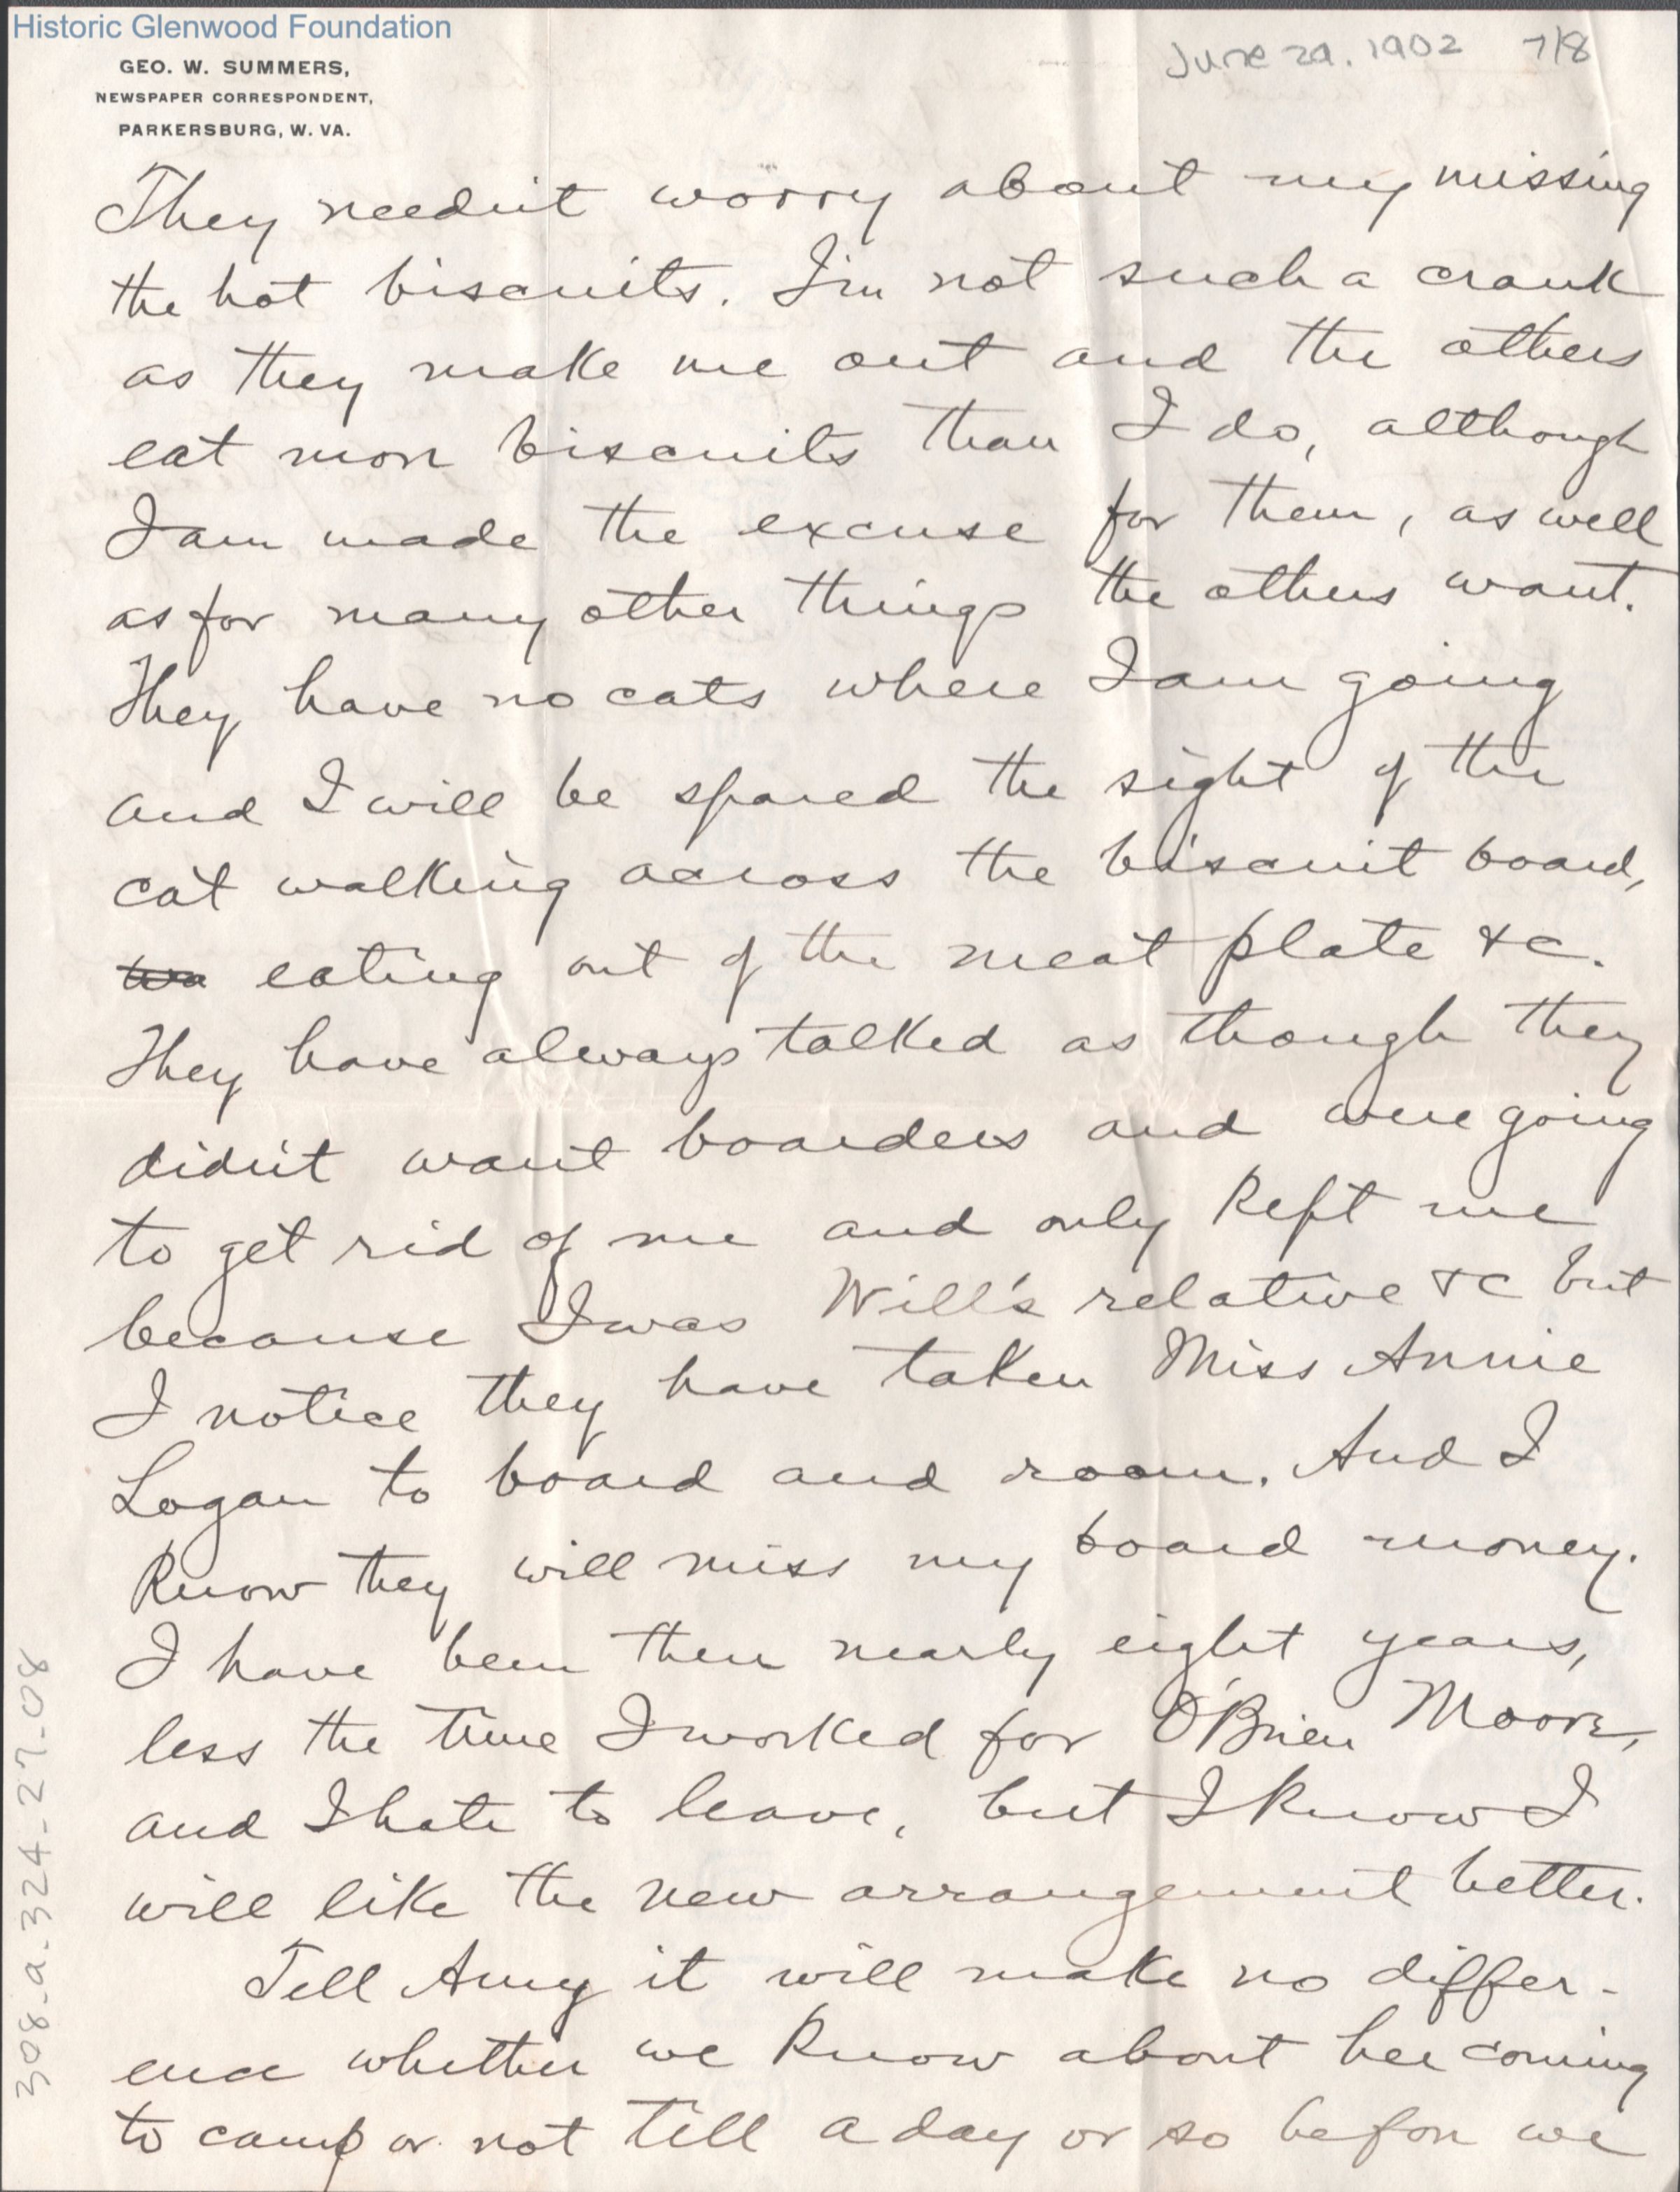 Historic Glenwood Foundation
June 29. 1902 7/8
GEO. W. SUMMERS,
NEWSPAPER CORRESPONDENT,
PARKERSBURG, W. VA.
They needn't worry about my missing
the hot biscuits. I'm not such a crank
as they make me out and the others
eat more biscuits than I do, although
I am made the excuse for them, as well
as for many other things the others want.
They have no cats where I am going
and I will be spared the sight of the
cat walking across the biscuit board,
eating out of the meat plate &c.
They have always talked as though they
didn't want boarders and were going
to get rid of me and only kept me
because I was Will's relative &c but
I notice they have taken Miss Annie
Logan to board and room. And I
know they will miss my board money.
I have been there nearly eight years,
less the time I worked for O'Brien Moore,
and I hate to leave, but I know I
will like the new arrangement better.
Tell Amy it will make no differ-
ence whether we know about her coming
to camp or not till a day or so before we
308-a.324-27-08